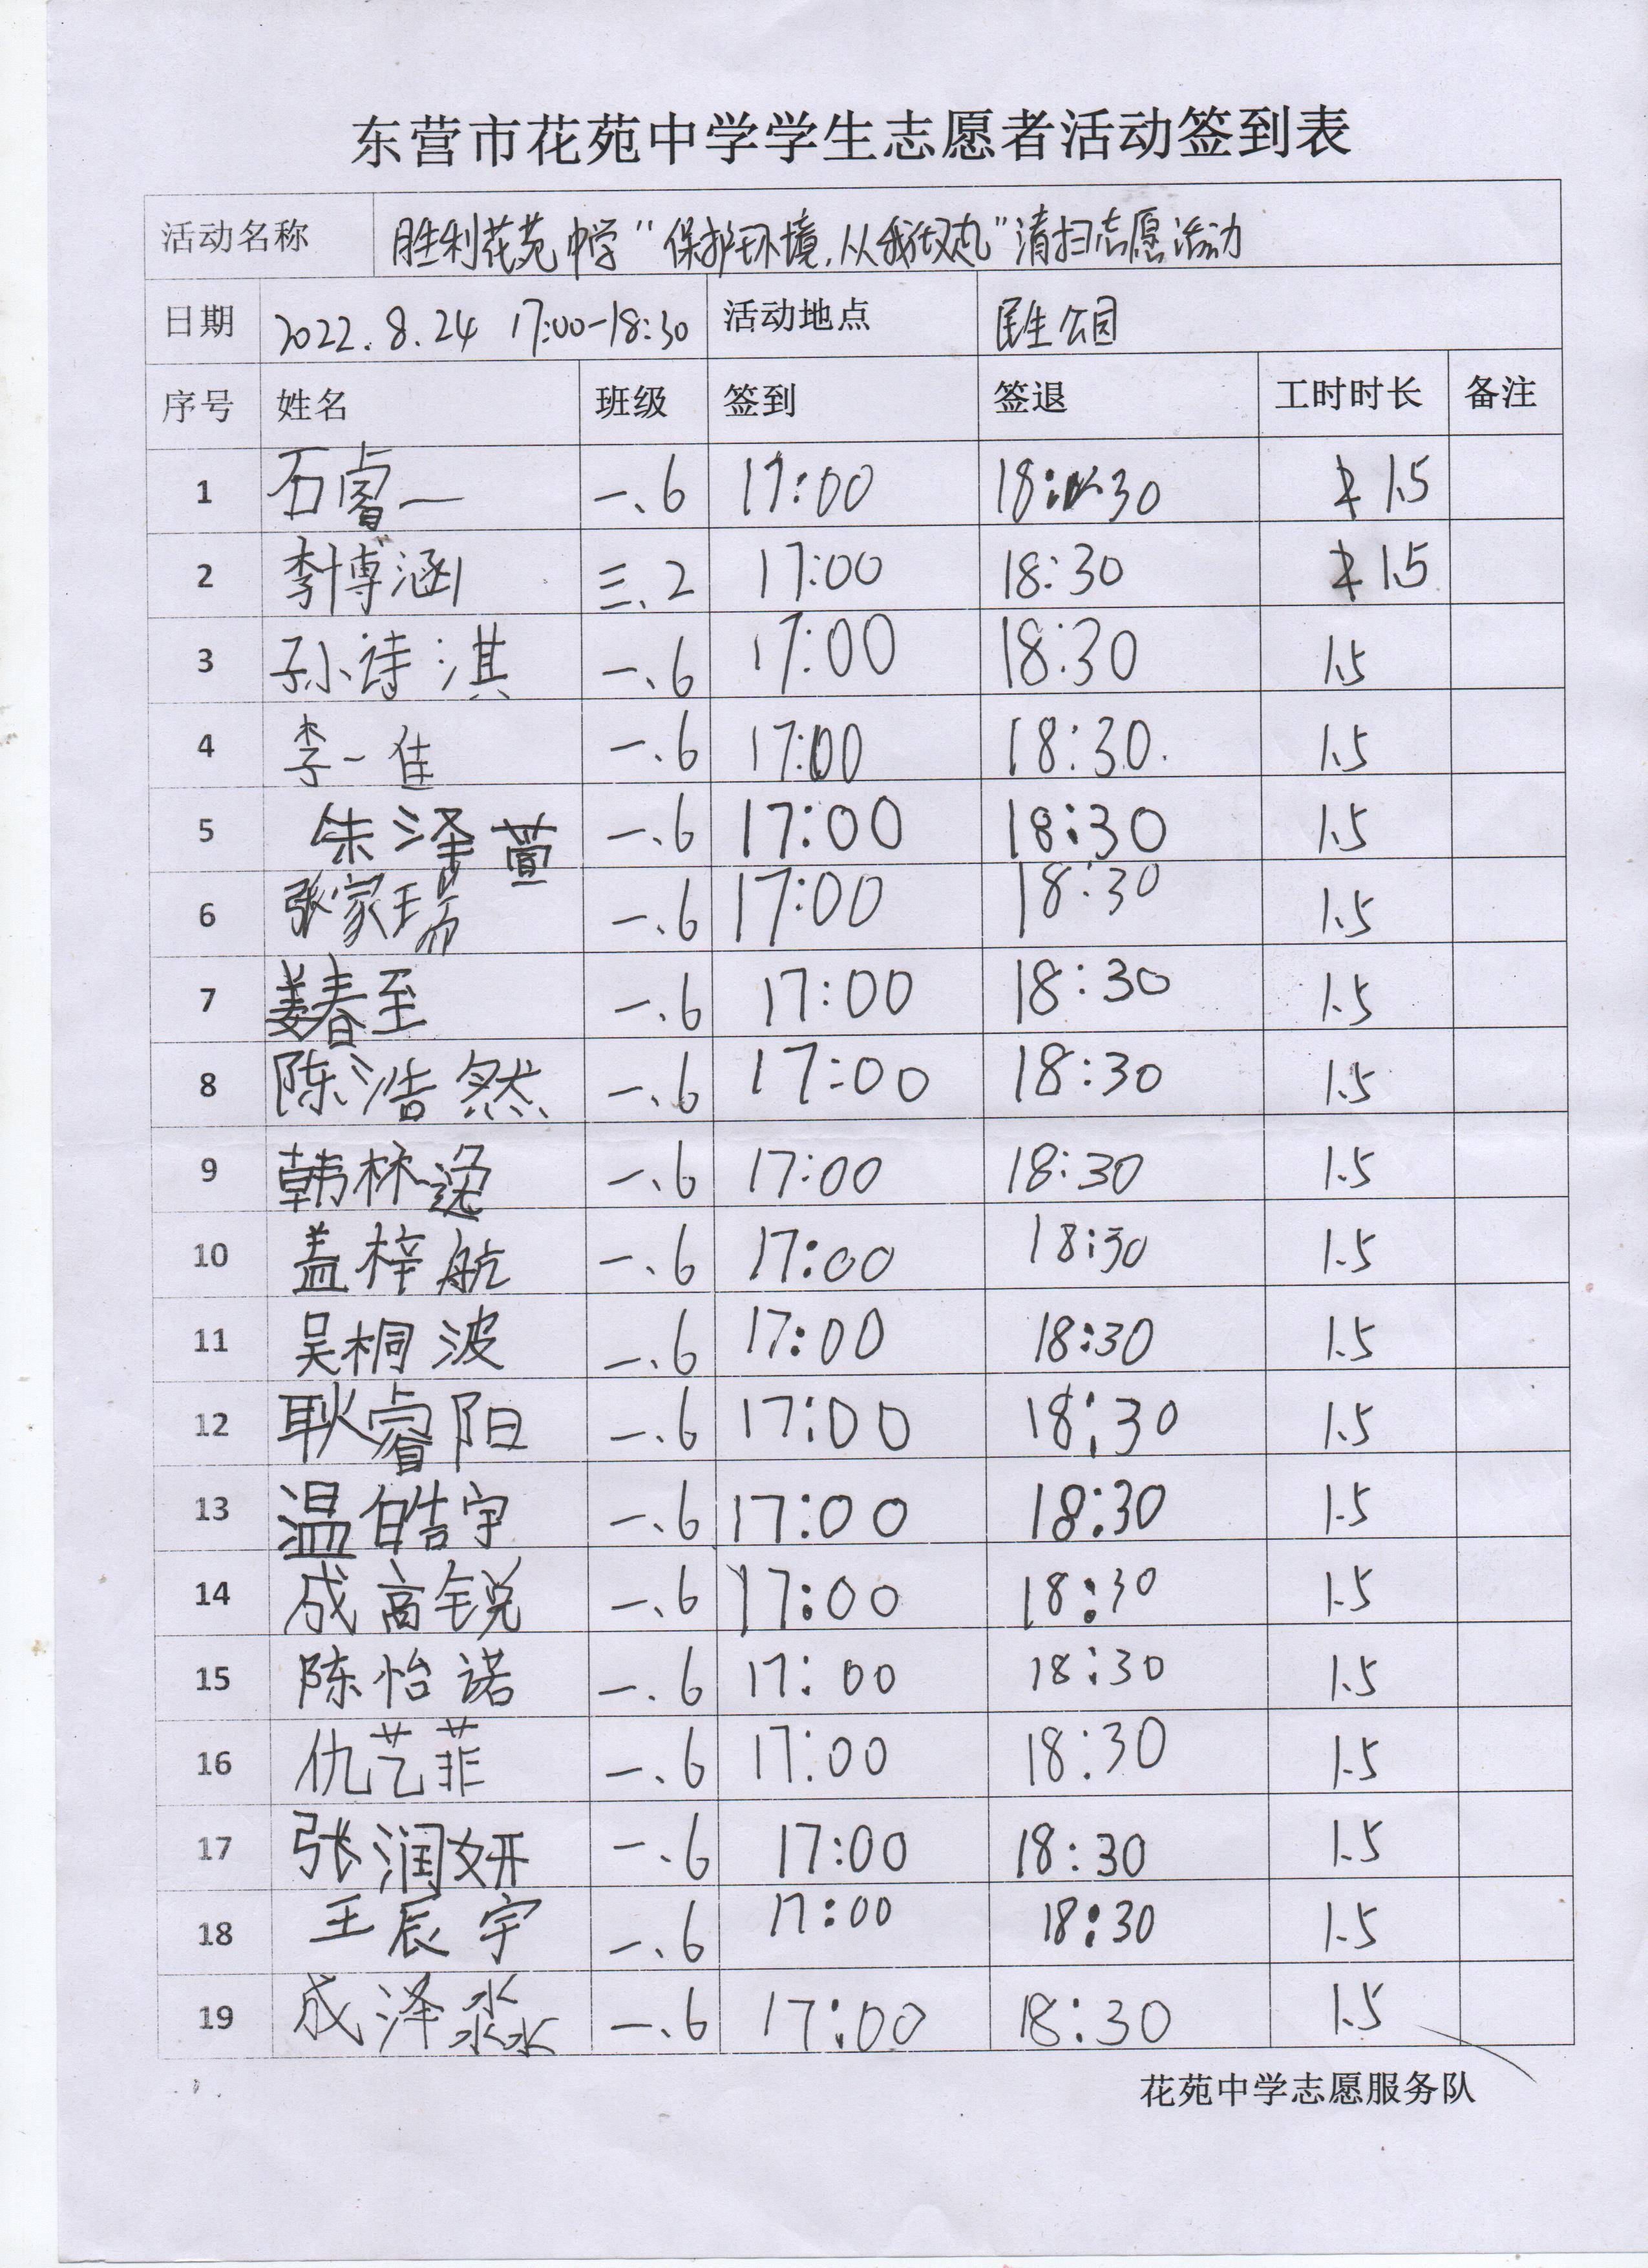 东营市花苑中学学生志愿者活动签到表
活动名称 胜利花苑中学“保护环境,从我做起”清扫志愿活动
日期 2022.8.24 17:00-18:30 活动地点 民生公园
序号 姓名 班级 签到 签退 工时时长 备注
1 石睿一 一、6 17:00 18:30 1.5
2 李博涵 三、2 17:00 18:30 1.5
3 孙诗淇 一、6 17:00 18:30 1.5
4 李一佳 一、6 17:00 18:30. 1.5
5 朱泽萱 一、6 17:00 18:30 1.5
6 张家瑞 一、6 17:00 18:30 1.5
7 姜春至 一、6 17:00 18:30 1.5
8 陈浩然 一、6 17:00 18:30 1.5
9 韩林逸 一、6 17:00 18:30 1.5
10 盖梓航 一、6 17:00 18:30 1.5
11 吴桐波 一、6 17:00 18:30 1.5
12 耿睿阳 一、6 17:00 18:30 1.5
13 温皓宇 一、6 17:00 18:30 1.5
14 成高锐 一、6 17:00 18:30 1.5
15 陈怡诺 一、6 17:00 18:30 1.5
16 仇艺菲 一、6 17:00 18:30 1.5
17 张润妍 一、6 17:00 18:30 1.5
18 王辰宇 一、6 17:00 18:30 1.5
19 成泽淼 一、6 17:00 18:30 1.5
花苑中学志愿服务队